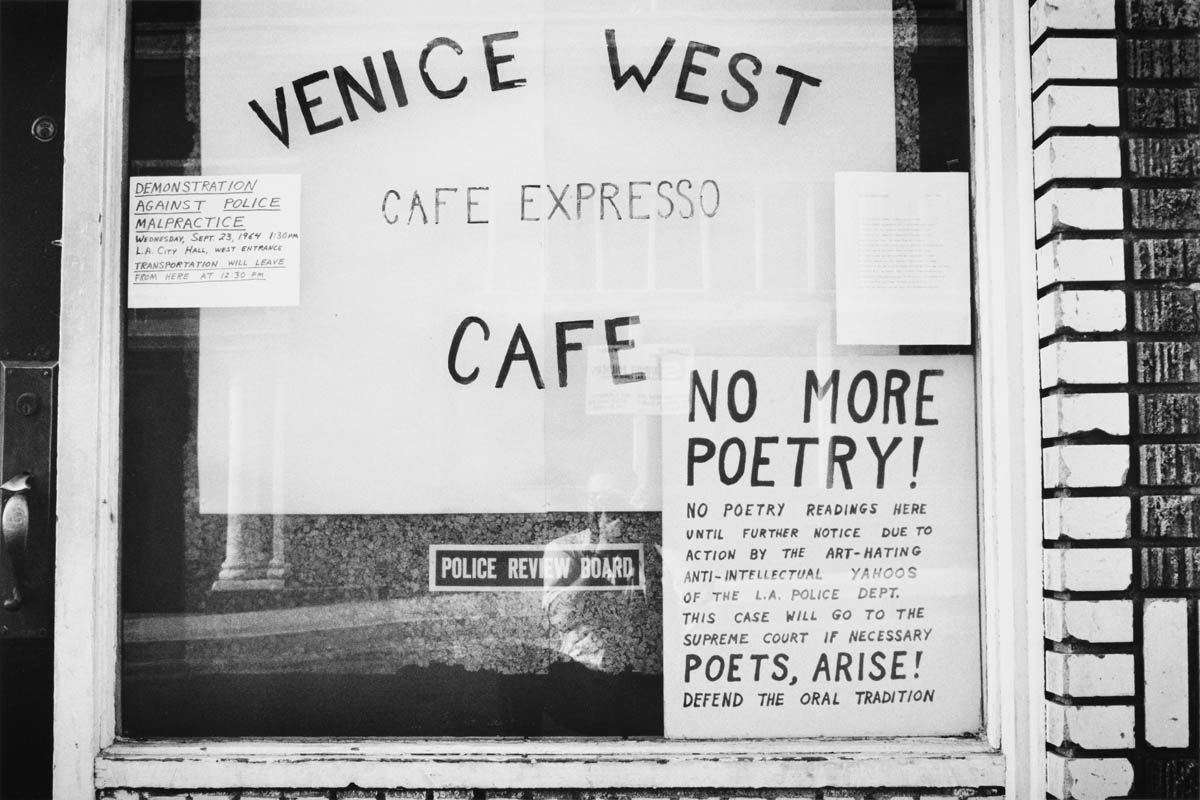 VENICE WEST
CAFE EXPRESSO
CAFE
DEMONSTRATION
AGAINST POLICE
MALPRACTICE
WEDNESDAY, SEPT. 23, 1964 1:30PM
L.A. CITY HALL, WEST ENTRANCE
TRANSPORTATION WILL LEAVE
FROM HERE AT 12:30 PM
NO MORE
POETRY!
NO POETRY READINGS HERE
UNTIL FURTHER NOTICE DUE TO
ACTION BY THE ART-HATING
ANTI-INTELLECTUAL YAHOOS
OF THE L.A. POLICE DEPT.
THIS CASE WILL GO TO THE
SUPREME COURT IF NECESSARY
POETS, ARISE!
DEFEND THE ORAL TRADITION
POLICE REVIEW BOARD